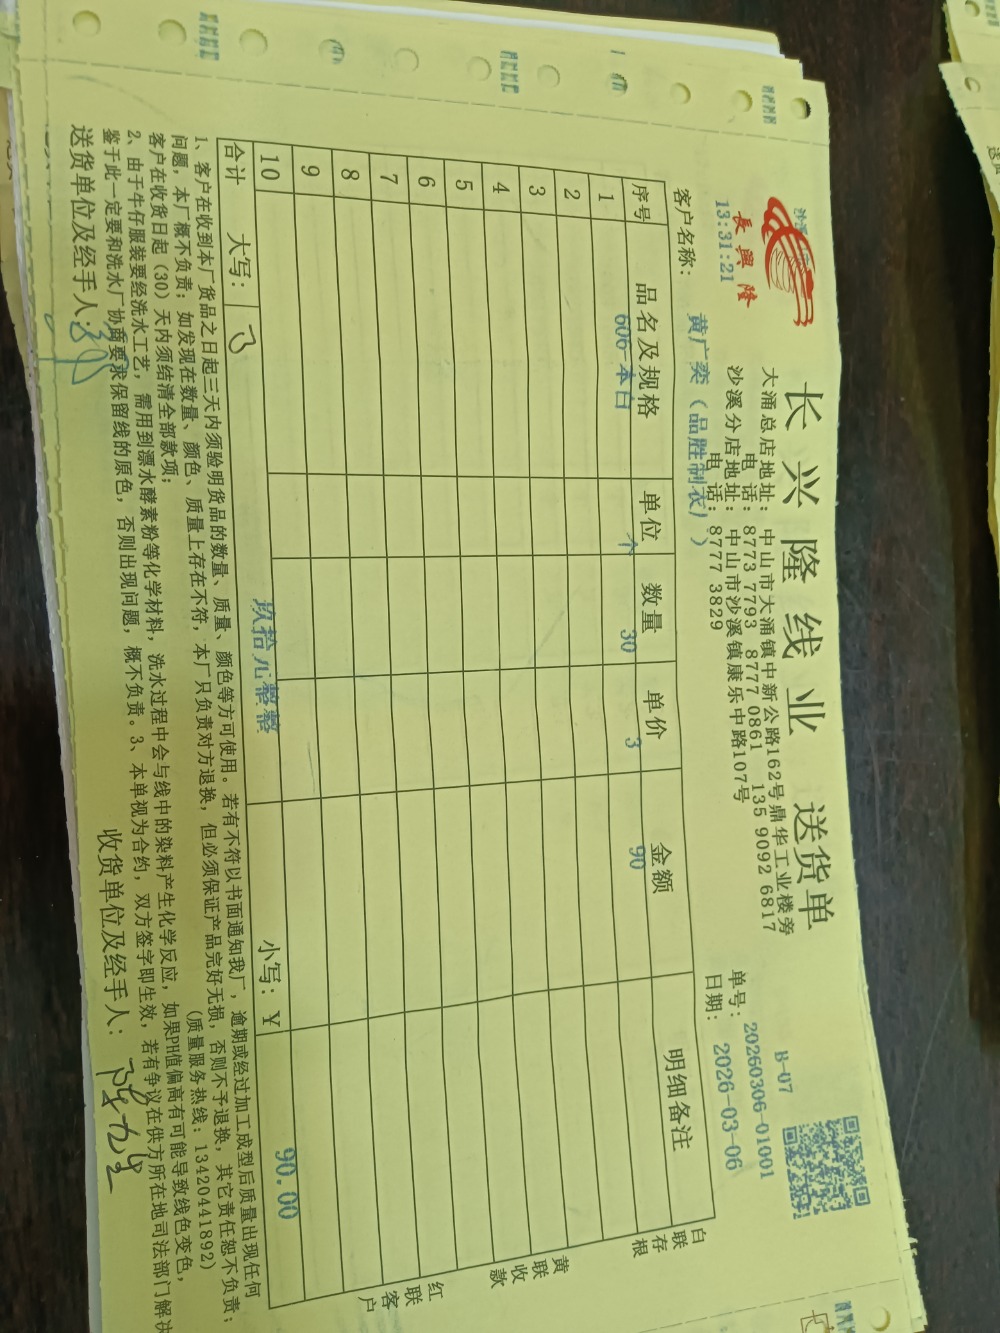 長興隆
长兴隆线业 送货单
大涌总店地址：中山市大涌镇中新公路162号鼎华工业楼旁
电 话：8773 7793 8777 0861 135 9092 6817
沙溪分店地址：中山市沙溪镇康乐中路107号
电 话：8777 3829
B-07
单号：20260306-01001
日期：2026-03-06
13:31:21
客户名称：黄广奕（品胜制衣）)
序号 品名及规格 单位 数量 单价 金额 明细备注
1 606-本白 个 30 3 90
2
3
4
5
6
7
8
9
10
合计 大写： 玖拾元整整 小写：¥ 90.00
1、客户在收到本厂货品之日起三天内须验明货品的数量、质量、颜色等方可使用。若有不符以书面通知我厂，逾期或经过加工成型后质量出现任何
问题，本厂概不负责；如发现在数量、颜色、质量上存在不符，本厂只负责对方退换，但必须保证产品完好无损，否则不予退换，其它责任恕不负责；
客户在收货日起（30）天内须结清全部款项； （质量服务热线：13420441892）
2、由于牛仔服装要经洗水工艺，需用到漂水酵素粉等化学材料，洗水过程中会与线中的染料产生化学反应，如果PH值偏高有可能导致线色变色，
鉴于此一定要和洗水厂协商要求保留线的原色，否则出现问题，概不负责。3、本单视为合约，双方签字即生效，若有争议在供方所在地司法部门解决
送货单位及经手人：
收货单位及经手人：
白联存根
黄联收款
红联客户